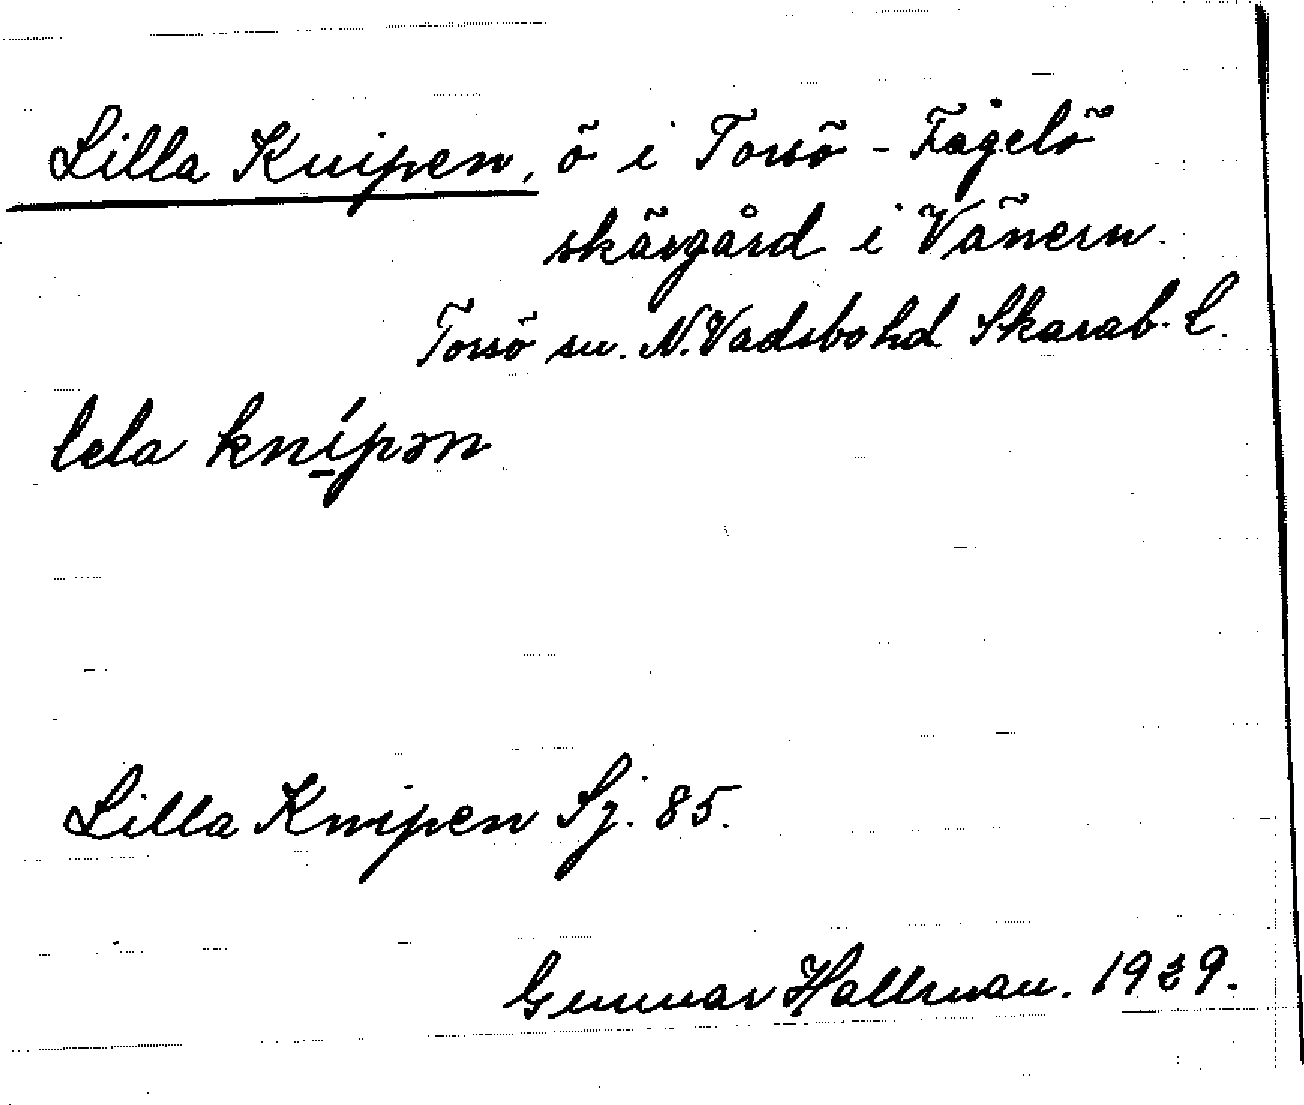 Lilla Knipen, ö i Torsö - Fågelö
skärgård i Vänern.
Torsö sn. N. Vadsbo hd Skarab. l.
lela kní̱pən
Lilla Knipen Sj. 85.
Gunnar Hallman. 1929.